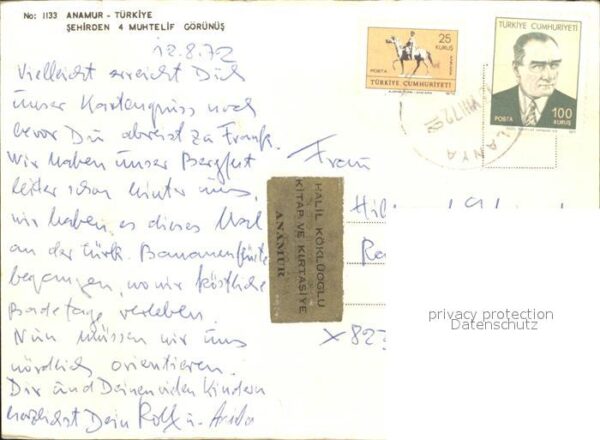 No: 1133 ANAMUR - TÜRKİYE
ŞEHİRDEN 4 MUHTELİF GÖRÜNÜŞ
12.8.72
Vielleicht erreicht Dich
unser Kartengruss noch
bevor Du abreist zu Frank.
Wir haben unser Bergfest
leider schon hinter uns,
wir haben es dieses Mal
an der türk. Bananenküste
begangen, wo wir köstliche
Badetage verleben.
Nun müssen wir uns
nördlich orientieren.
Dir und Deinen Kindern
herzlichst Dein Rolf u.
25
KURUŞ
POSTA
TÜRKİYE CUMHURİYETİ
TÜRKİYE CUMHURİYETİ
POSTA
100
KURUŞ
LANYA
Frau
HALİL KÖKLÜOĞLU
KİTAP VE KIRTASİYE
ANAMUR
X 823
privacy protection
Datenschutz